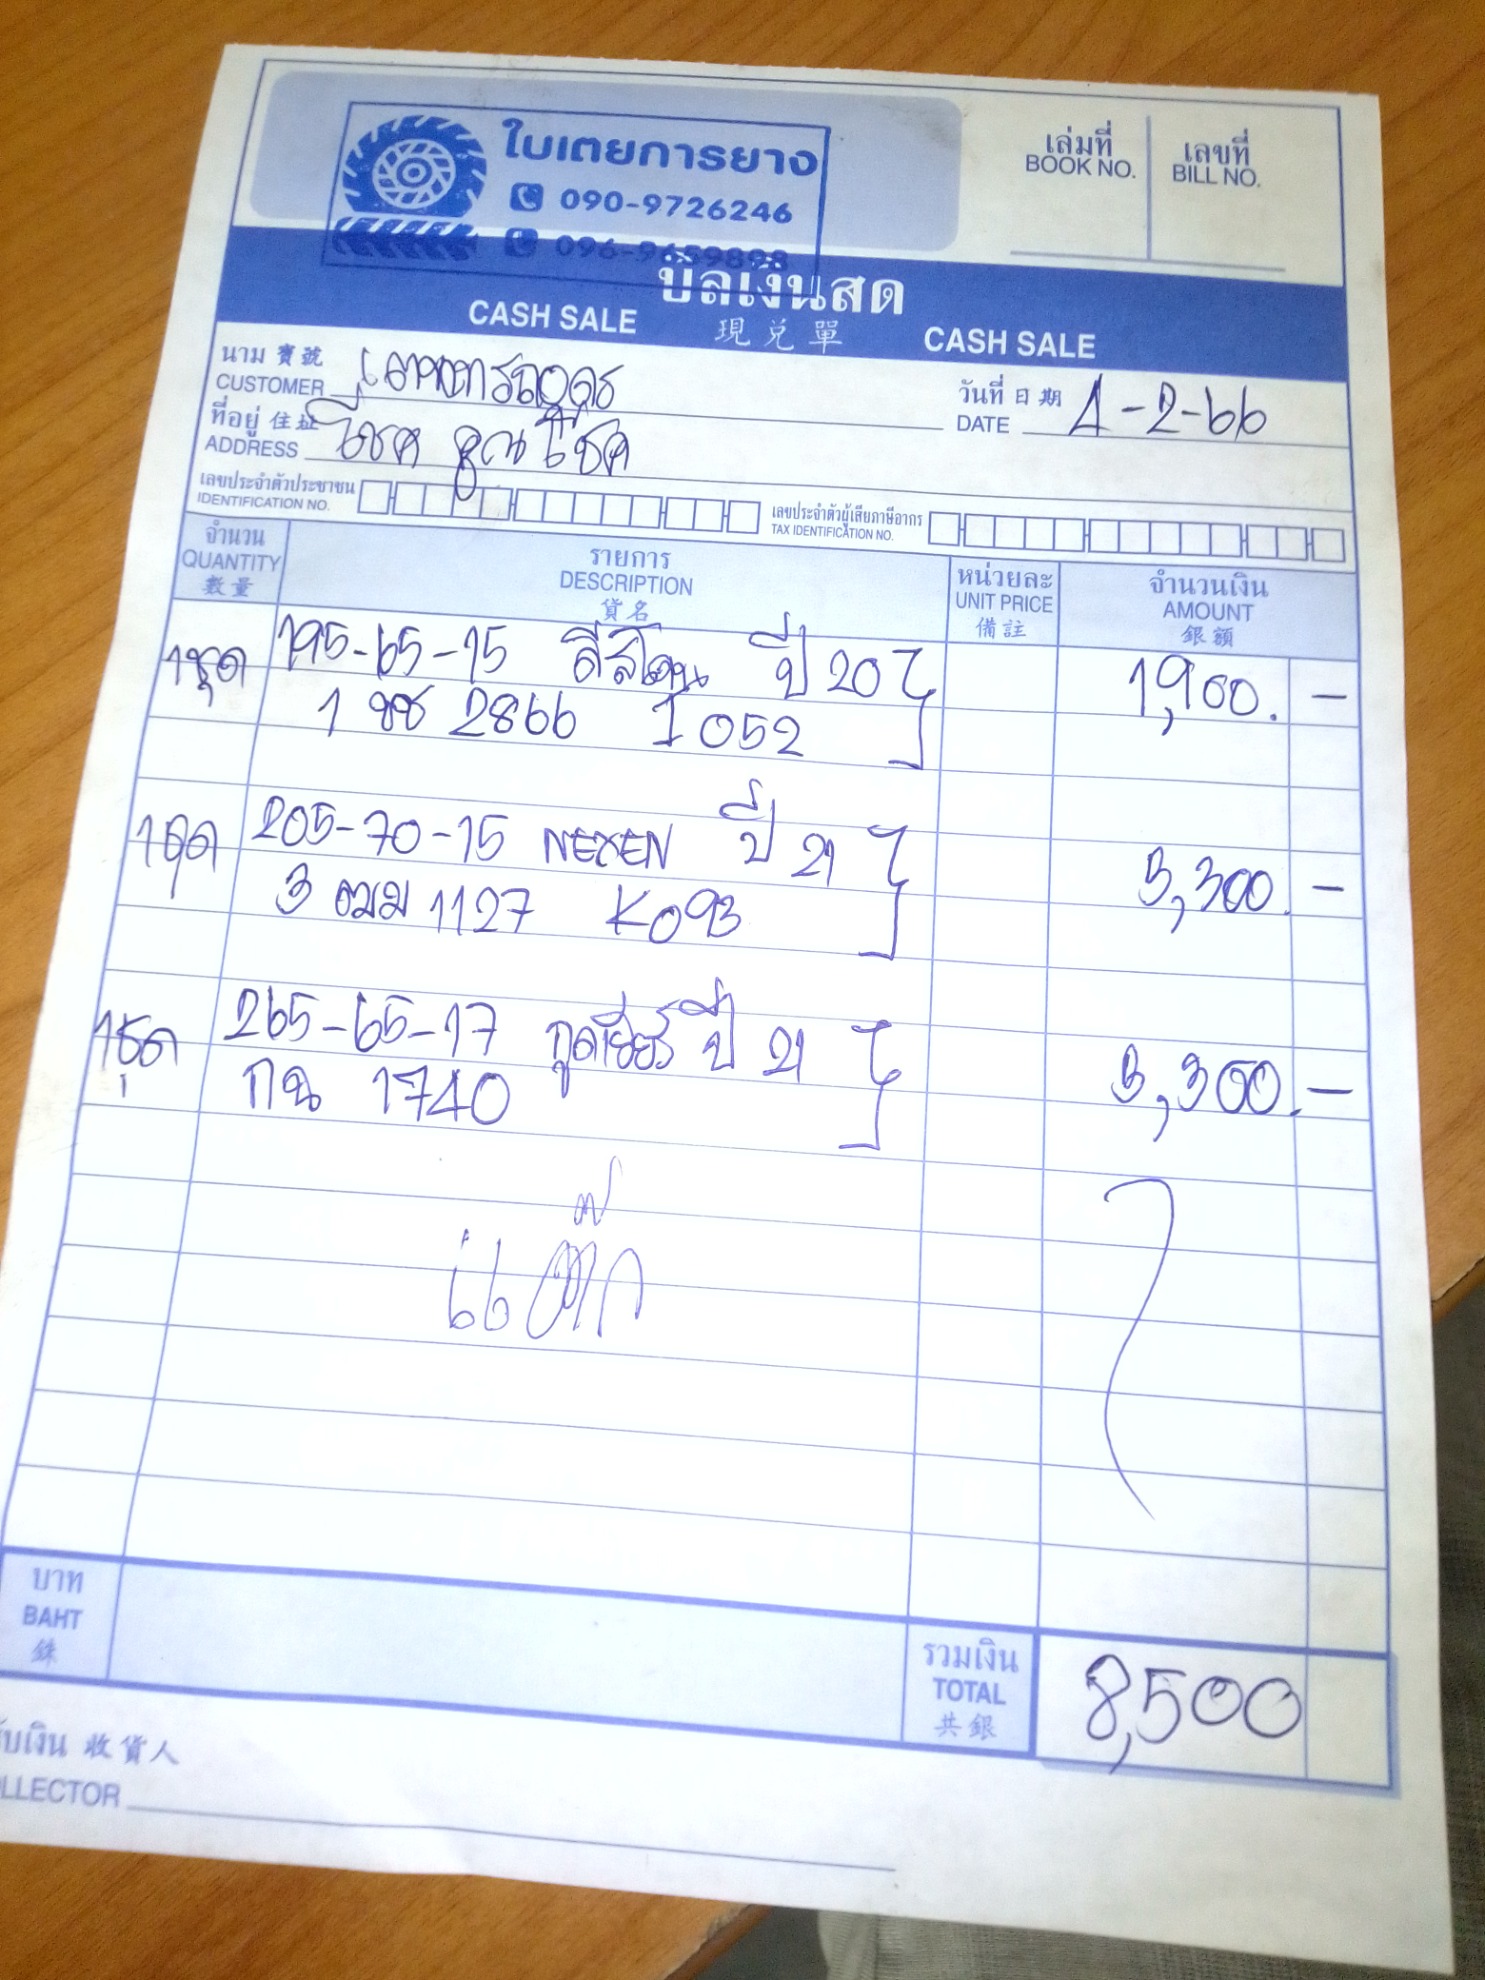 ใบเตยการยาง
090-9726246
096-9659898
เล่มที่ เลขที่
BOOK NO. BILL NO.
บิลเงินสด
CASH SALE 現兌單 CASH SALE
นาม 寶號
CUSTOMER
วันที่ 日期 4-2-66
DATE
ที่อยู่ 住址
ADDRESS โชค คูณ โชค
เลขประจำตัวประชาชน
IDENTIFICATION NO.
เลขประจำตัวผู้เสียภาษีอากร
TAX IDENTIFICATION NO.
จำนวน รายการ หน่วยละ จำนวนเงิน
QUANTITY DESCRIPTION UNIT PRICE AMOUNT
數量 貨名 備註 銀額
1ชุด 195-65-15 ดีสโตน ปี 20 1,900.-
1 ขช 2866 I 052
1ชุด 205-70-15 NEXEN ปี 21 3,300.-
3 ฒฌ 1127 K093
1ชุด 265-65-17 กูดเยียร์ ปี 21 3,300.-
กน 1740
บาท
BAHT
銖
รวมเงิน
TOTAL 8,500
共銀
รับเงิน 收貨人
LLECTOR